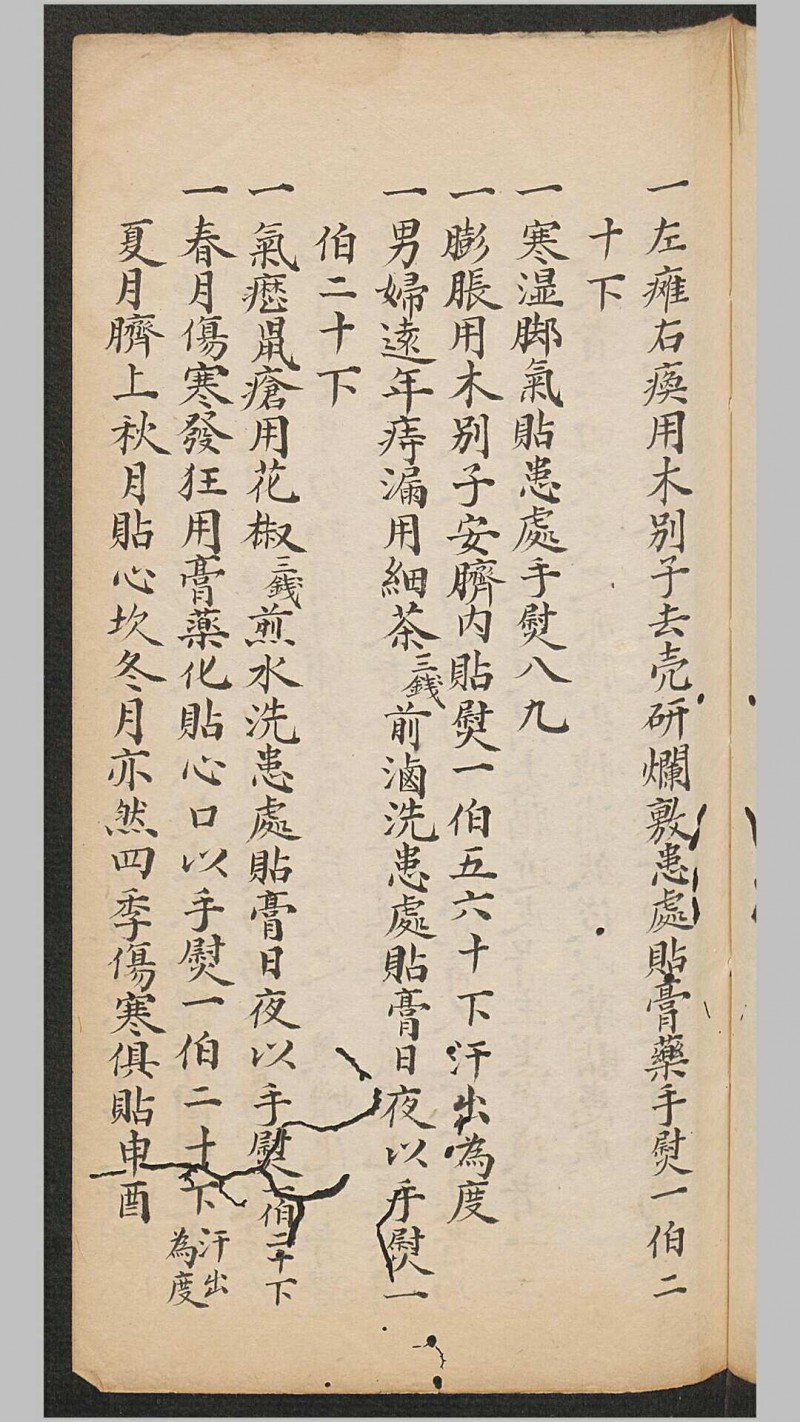 一左癱右瘓用木別子去壳研爛敷患處貼膏藥手熨一伯二
十下
一寒湿脚氣貼患處手熨八九
一膨脹用木別子安臍内貼熨一伯五六十下汗出為度
一男婦遠年痔漏用細茶三錢前滷洗患處貼膏日夜以手熨一
伯二十下
一氣癧鼠瘡用花椒三錢煎水洗患處貼膏日夜以手熨一伯二十下
一春月傷寒發狂用膏藥化貼心口以手熨一伯二十下汗出為度
夏月臍上秋月貼心坎冬月亦然四季傷寒俱貼申酉